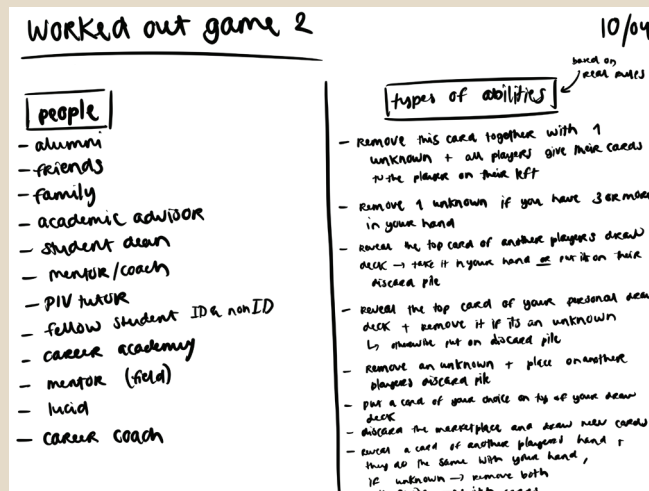 Worked out game 2
10/04
based on
real rules
people
- alumni
- friends
- family
- academic advisor
- student dean
- mentor/coach
- PIV tutor
- fellow student ID & non ID
- career academy
- mentor (field)
- lucid
- career coach
types of abilities
- Remove this card together with 1
unknown + all players give their cards
to the player on their left
- Remove 1 unknown if you have 3 or more
in your hand
- Reveal the top card of another players draw
deck → take it in your hand or put it on their
discard pile
- Reveal the top card of your personal draw
deck + remove it if its an unknown
↳ otherwise put on discard pile
- Remove an unknown + place on another
players discard pile
- put a card of your choice on top of your draw
deck
- discard the marketplace and draw new cards
- reveal a card of another players hand +
they do the same with your hand,
if unknown → remove both